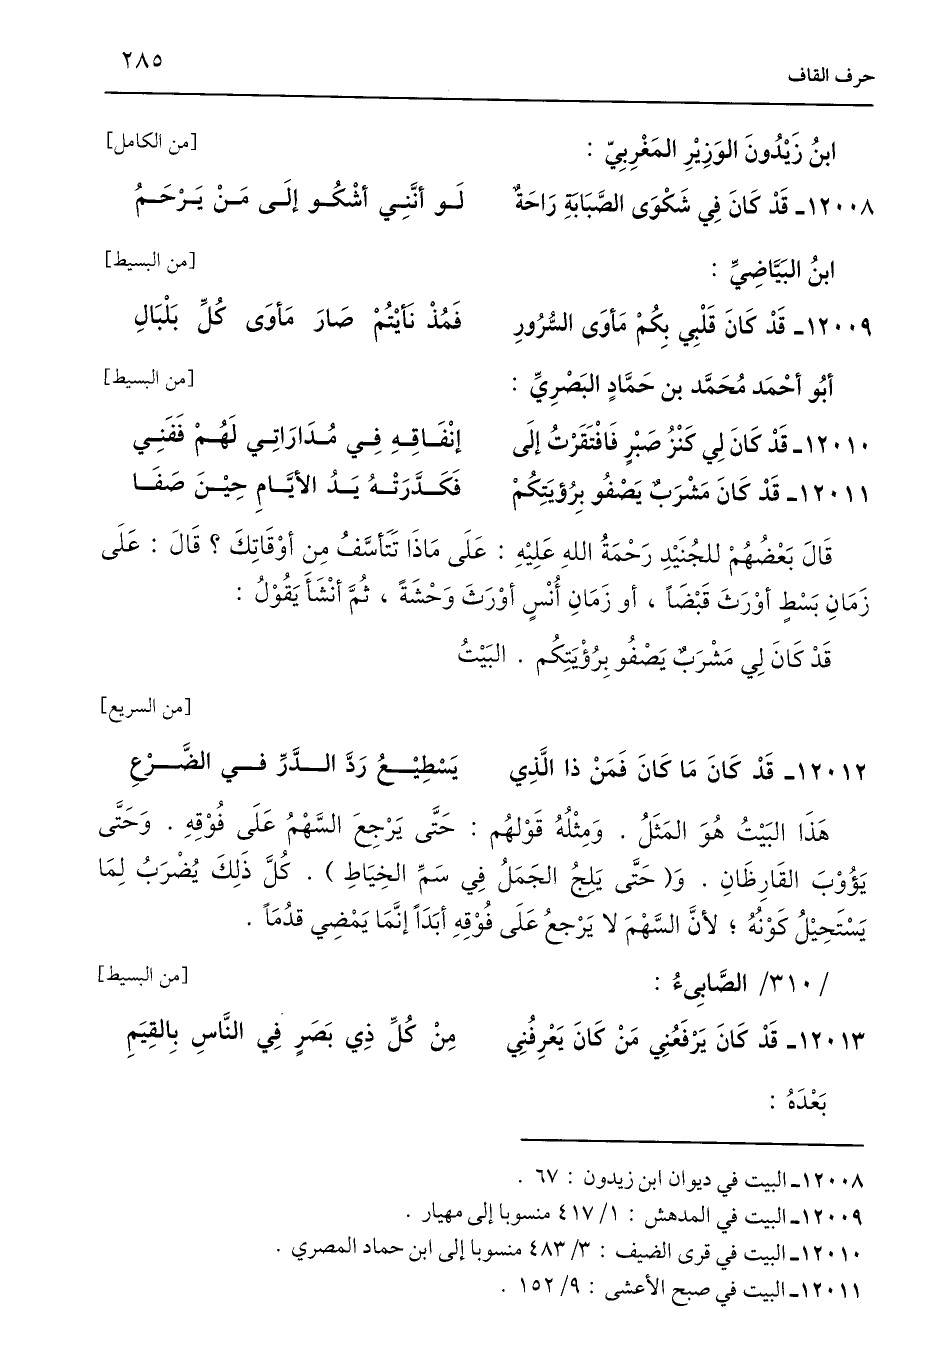 حرف القاف ٢٨٥
ابنُ زَيْدُونَ الوَزِيْرِ المَغْرِبِيّ : [من الكامل]
١٢٠٠٨ـ قَدْ كَانَ فِي شَكْوَى الصَّبَابَةِ رَاحَةٌ لَو أنَّنِي أشْكُو إلَى مَنْ يَرْحَمُ
ابنُ البَيَّاضِيِّ : [من البسيط]
١٢٠٠٩ـ قَدْ كَانَ قَلْبِي بِكُمْ مَأوَى السُّرُورِ فَمُذْ نَأيْتُمْ صَارَ مَأوَى كُلِّ بَلْبَالِ
أبُو أحْمَد مُحَمَّد بن حَمَّادٍ البَصْرِيِّ : [من البسيط]
١٢٠١٠ـ قَدْ كَانَ لِي كَنْزُ صَبْرٍ فَافْتَقَرْتُ إلَى إنْفَاقِهِ فِي مُدَارَاتِي لَهُمْ فَفَنِي
١٢٠١١ـ قَدْ كَانَ مَشْرَبٌ يَصْفُو بِرُؤيَتِكُمْ فَكَدَّرَتْهُ يَدُ الأيَّامِ حِيْنَ صَفَا
قَالَ بَعْضُهُمْ للجُنَيْدِ رَحْمَةُ اللهِ عَلِيْهِ : عَلَى مَاذَا تَتَأسَّفُ مِن أوْقَاتِكَ ؟ قَالَ : عَلَى
زَمَانِ بَسْطٍ أوْرَثَ قَبْضَاً ، أو زَمَانِ أُنْسٍ أوْرَثَ وَحْشَةً ، ثُمَّ أنْشَأَ يَقُوْلُ :
قَدْ كَانَ لِي مَشْرَبٌ يَصْفُو بِرُؤْيَتِكُم . البَيْتُ
[من السريع]
١٢٠١٢ـ قَدْ كَانَ مَا كَانَ فَمَنْ ذا الَّذِي يَسْطِيْعُ رَدَّ الدَّرِّ فِي الضَّرْعِ
هَذَا البَيْتُ هُوَ المَثَلُ . وَمِثْلُهُ قَوْلهُم : حَتَّى يَرْجِعَ السَّهْمُ عَلَى فُوْقِهِ . وَحَتَّى
يَؤُوْبَ القَارِظَانِ . وَ( حَتَّى يَلِجُ الجَمَلُ فِي سَمِّ الخِيَاطِ ) . كُلَّ ذَلِكَ يُضْرَبُ لِمَا
يَسْتَحِيْلُ كَوْنُهُ ؛ لأنَّ السَّهْمَ لا يَرْجعُ عَلَى فُوْقِهِ أبَدَاً إنَّمَا يَمْضِي قدُمَاً .
/٣١٠/ الصَّابِىءُ : [من البسيط]
١٢٠١٣ـ قَدْ كَانَ يَرْفَعُنِي مَنْ كَانَ يَعْرِفُنِي مِنْ كُلِّ ذِي بَصَرٍ فِي النَّاسِ بِالقِيَمِ
بَعْدَهُ :
١٢٠٠٨ـ البيت في ديوان ابن زيدون : ٦٧ .
١٢٠٠٩ـ البيت في المدهش : ١/ ٤١٧ منسوبا إلى مهيار .
١٢٠١٠ـ البيت في قرى الضيف : ٣/ ٤٨٣ منسوبا إلى ابن حماد المصري .
١٢٠١١ـ البيت في صبح الأعشى : ٩/ ١٥٢ .